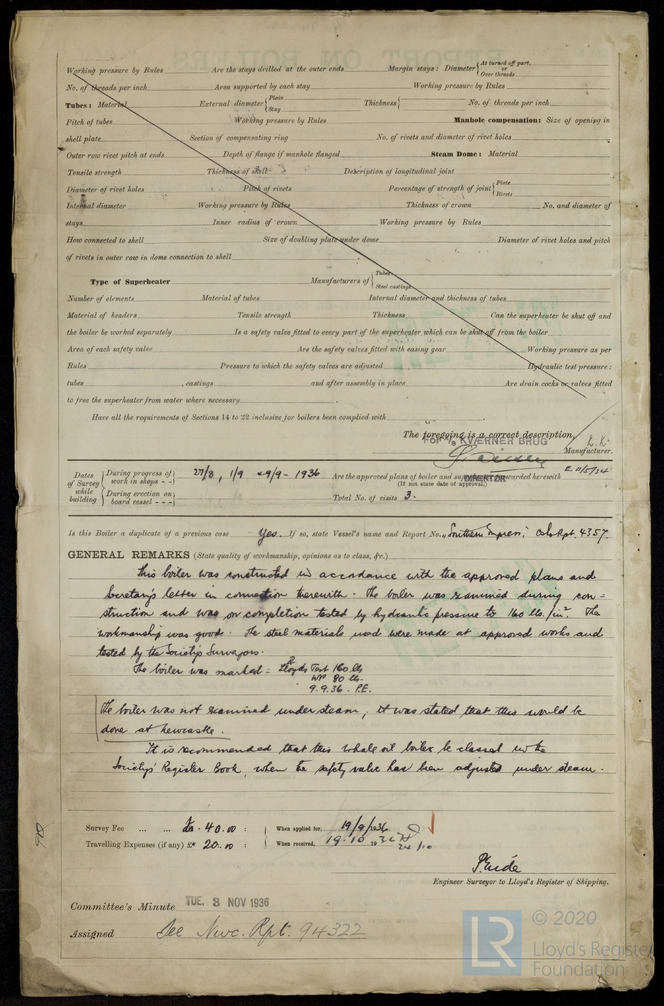 Working pressure by Rules Are the stays drilled at the outer ends Margin stays: Diameter { At turned off part, or Over threads
No. of threads per inch Area supported by each stay Working pressure by Rules
Tubes: Material External diameter { Plain Stay Thickness { No. of threads per inch
Pitch of tubes Working pressure by Rules Manhole compensation: Size of opening in
shell plate Section of compensating ring No. of rivets and diameter of rivet holes
Outer row rivet pitch at ends Depth of flange if manhole flanged Steam Dome: Material
Tensile strength Thickness of shell Description of longitudinal joint
Diameter of rivet holes Pitch of rivets Percentage of strength of joint { Plate Rivets
Internal diameter Working pressure by Rules Thickness of crown No. and diameter of
stays Inner radius of crown Working pressure by Rules
How connected to shell Size of doubling plate under dome Diameter of rivet holes and pitch
of rivets in outer row in dome connection to shell
Type of Superheater Manufacturers of { Tubes Steel castings
Number of elements Material of tubes Internal diameter and thickness of tubes
Material of headers Tensile strength Thickness Can the superheater be shut off and
the boiler be worked separately Is a safety valve fitted to every part of the superheater which can be shut off from the boiler
Area of each safety valve Are the safety valves fitted with easing gear Working pressure as per
Rules Pressure to which the safety valves are adjusted Hydraulic test pressure:
tubes , castings and after assembly in place Are drain cocks or valves fitted
to free the superheater from water where necessary
Have all the requirements of Sections 14 to 22 inclusive for boilers been complied with
The foregoing is a correct description,
FOR A/S KVÆRNER BRUG
Manufacturer.
DIREKTØR
Dates of Survey while building { During progress of work in shops - - 27/8, 1/9 & 9/9 - 1936 Are the approved plans of boiler and forwarded herewith
(If not state date of approval.)
During erection on board vessel - - - Total No. of visits 3.
Is this Boiler a duplicate of a previous case Yes. If so, state Vessel's name and Report No. "Southern Empress", Oslo Rpt. 4357.
GENERAL REMARKS (State quality of workmanship, opinions as to class, &c.)
This boiler was constructed in accordance with the approved plans and
Secretary's letter in connection therewith. The boiler was examined during con-
struction and was on completion tested by hydraulic pressure to 160 lbs./in². The
workmanship was good. The steel materials used were made at approved works and
tested by the Society's Surveyors.
The boiler was marked = Lloyds Test 160 lb
WP 80 lb.
9.9.36. P.E.
The boiler was not examined under steam, it was stated that this would be
done at Newcastle.
It is recommended that this whale oil boiler be classed in the
Society's Register Book, when the safety valve has been adjusted under steam.
Survey Fee ... ... Kr. 40.00 : When applied for, 19/9/1936
Travelling Expenses (if any) £ 20.00 : When received, 19.10 1936
Engineer Surveyor to Lloyd's Register of Shipping.
Committee's Minute TUE. 3 NOV 1936
Assigned See Nwc. Rpt. 94322
LR © 2020
Lloyd's Register
Foundation